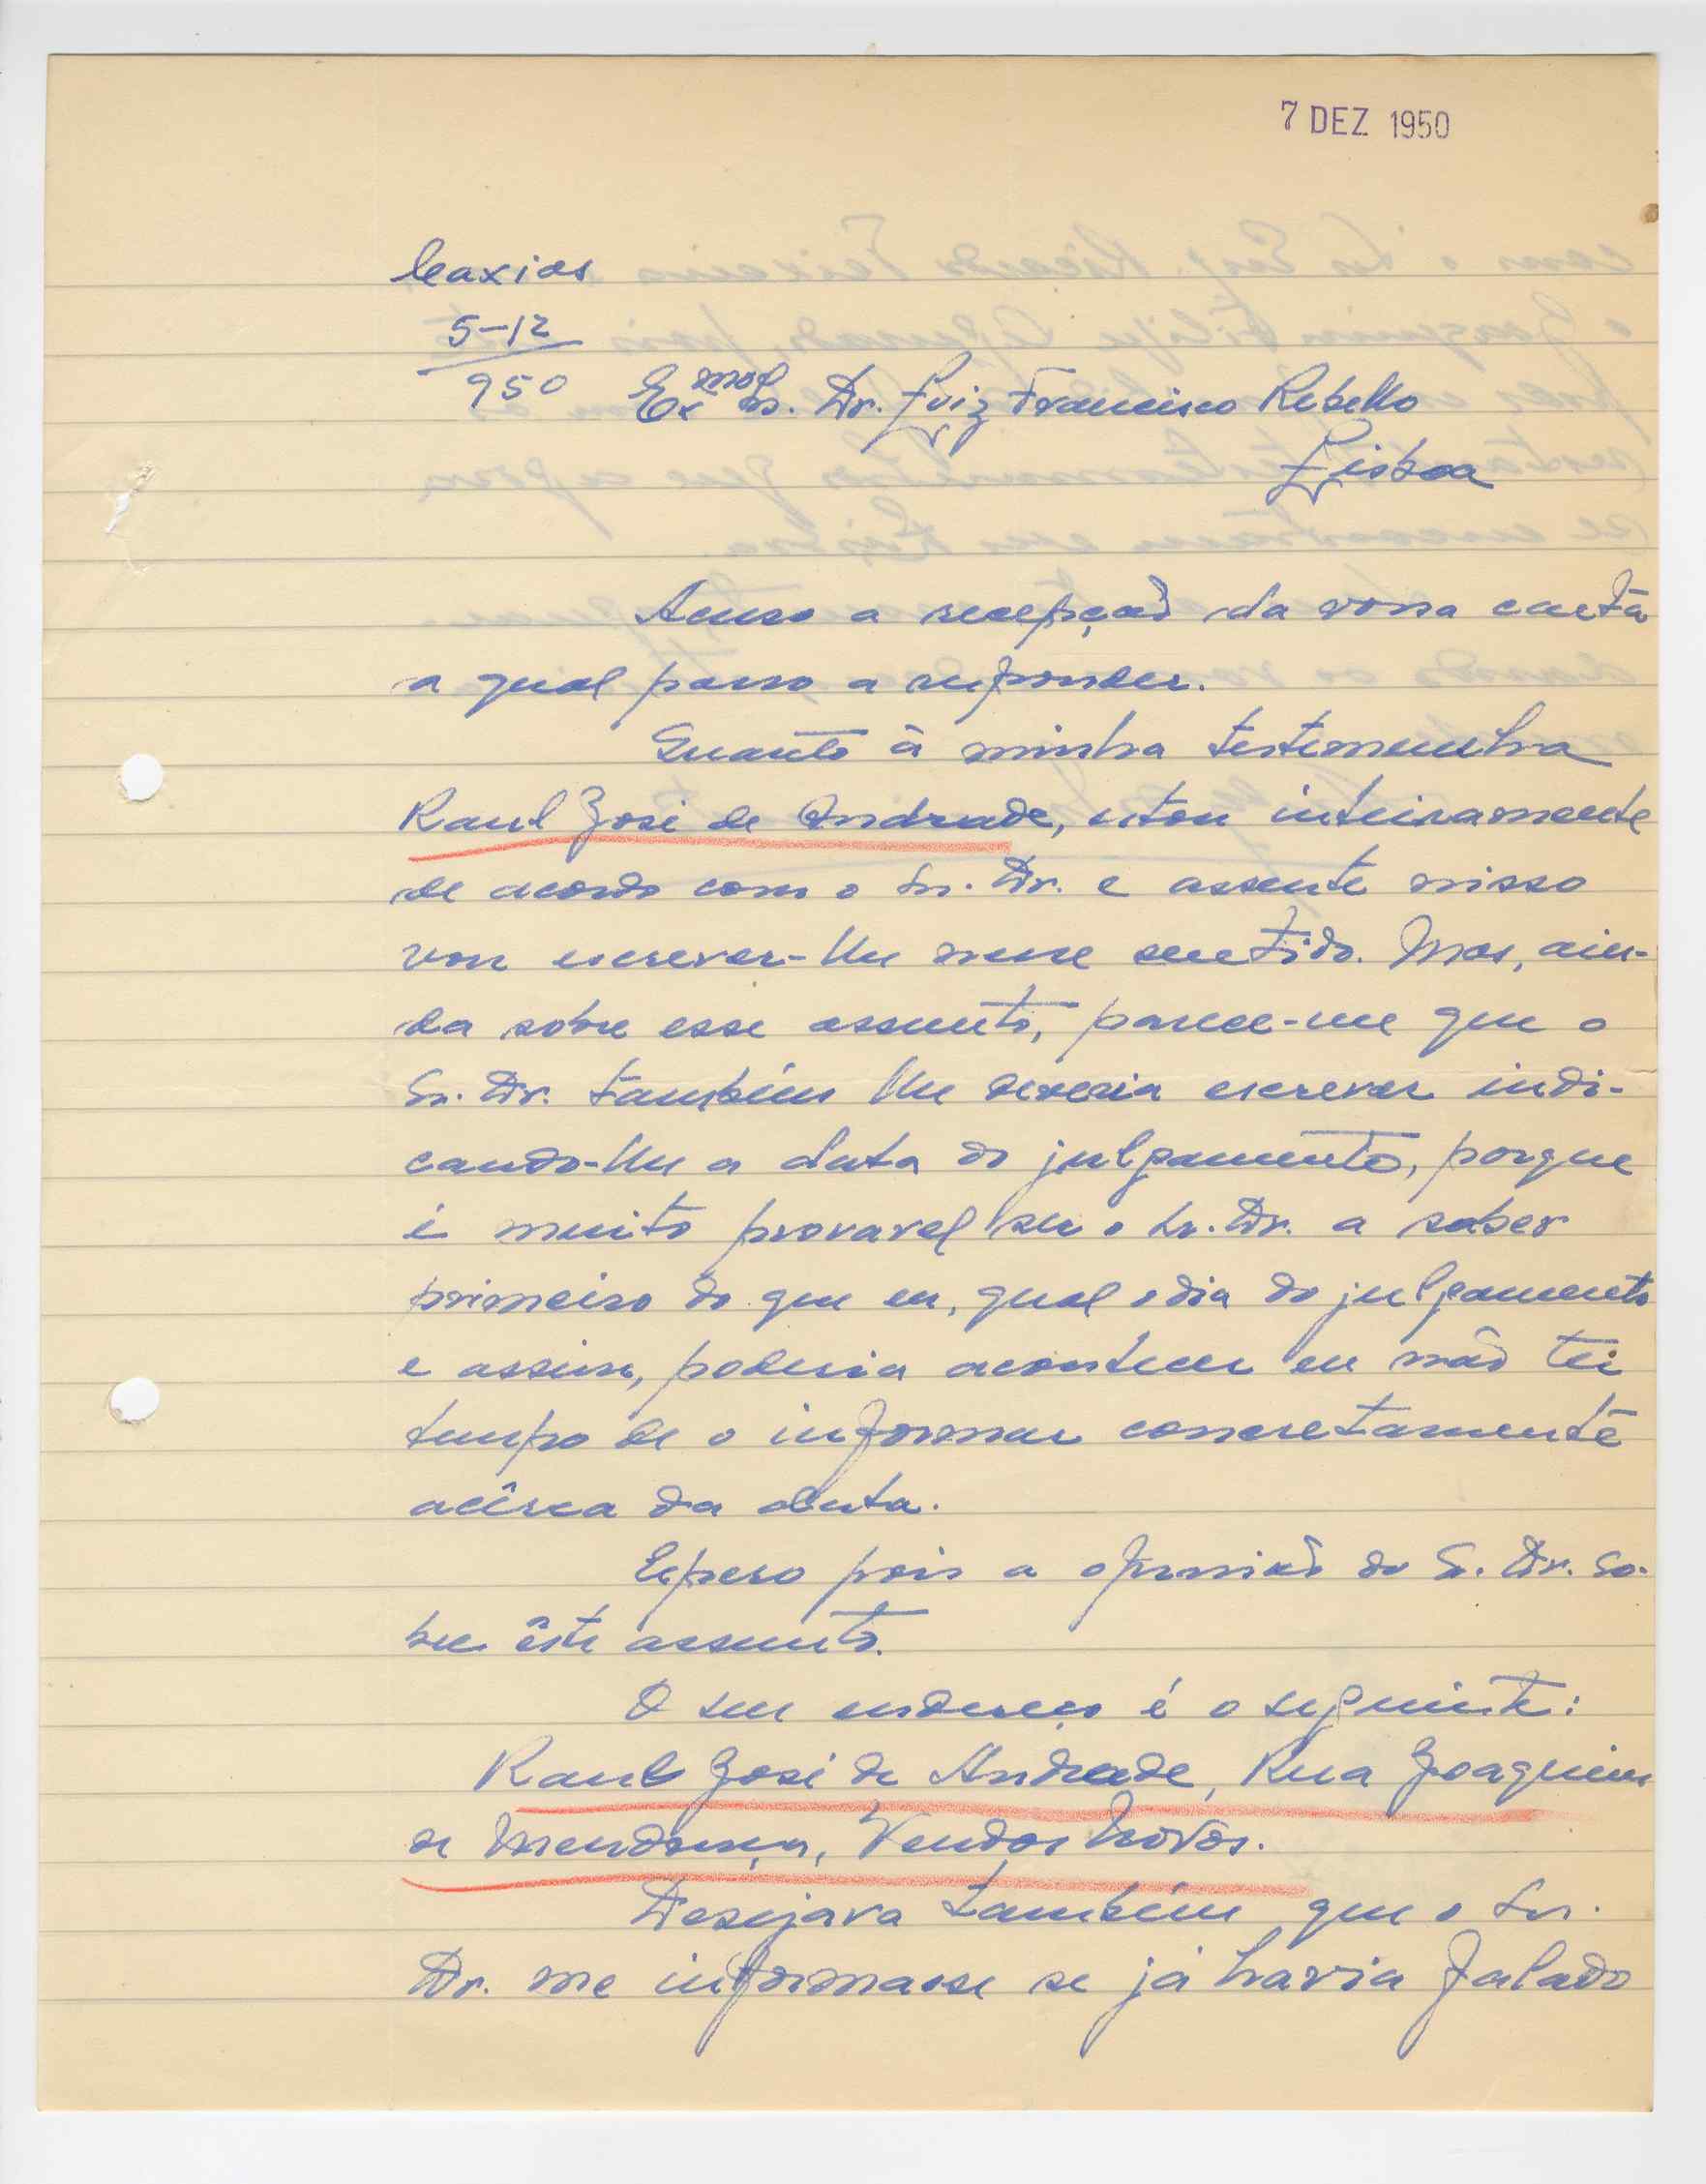 7 DEZ 1950
Caxias
5-12
950
Exmo Sr. Dr. Luiz Francisco Rebello
Lisboa
Acuso a recepção da vossa carta
a qual passo a responder.
Quanto à minha testemunha
Raul José de Andrade, estou inteiramente
de acordo com o Sr. Dr. e assente nisso
vou escrever-lhe nesse sentido. Mas, ain-
da sobre esse assunto, parece-me que o
Sr. Dr. também lhe deveria escrever indi-
cando-lhe a data do julgamento, porque
é muito provavel ser o Sr. Dr. a saber
primeiro do que eu, qual o dia do julgamento
e assim, poderia acontecer eu não ter
tempo de o informar concretamente
acêrca da data.
Espero pois a opinião do Sr. Dr. so-
bre êste assunto.
O seu endereço é o seguinte:
Raul José de Andrade, Rua Joaquim
de Mendonça, Vendas Novas.
Desejava também que o Sr.
Dr. me informasse se já havia falado